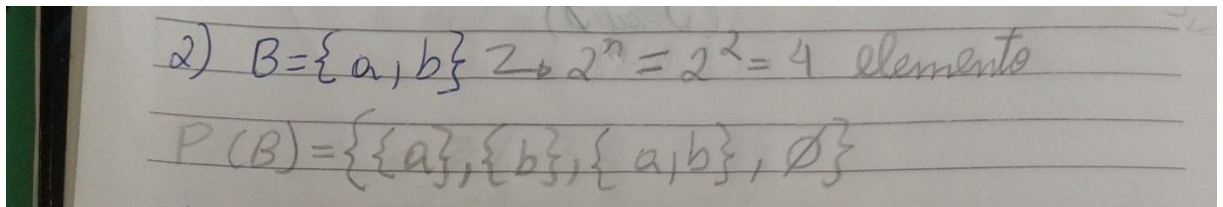 2) B={a,b} 2→ 2ⁿ = 2² = 4 elemento
P(B)={{a},{b},{a,b},∅}